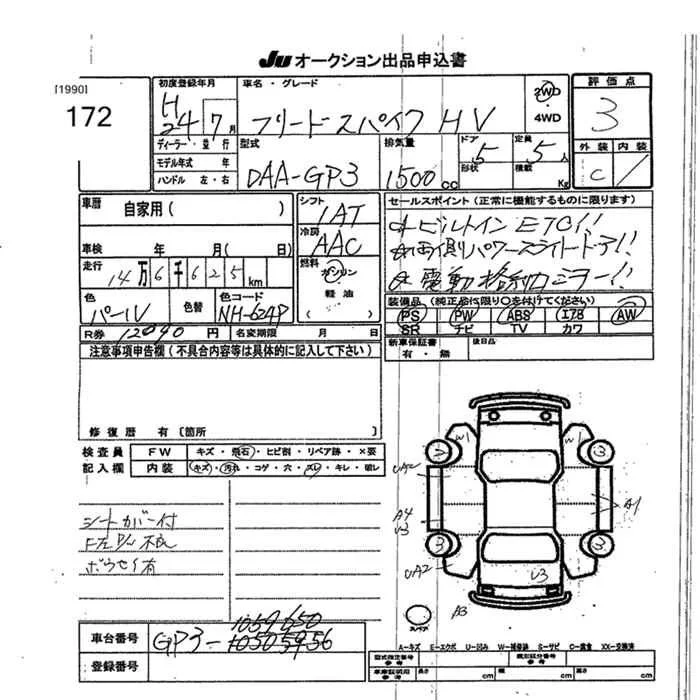 JU オークション出品申込書
[1990]
172
初度登録年月
H
24 7月
車名・グレード
フリード スパイク HV
2WD
4WD
評価点
3
外装 内装
C
ディーラー・並行
モデル年式 年
ハンドル 左・右
型式
DAA-GP3
排気量
1500 cc
ドア
5
形状
定員
5人
積載 Kg
車歴 自家用( )
車検 年 月( 日)
走行
14万6千625km
色
パールV
色替
色コード
NH-624P
シフト
IAT
冷房
AAC
燃料
ガソリン
軽油
( )
セールスポイント(正常に機能するものに限ります)
☆ビルトインETC!!
☆両側パワースライドドア!!
☆電動格納ミラー!!
装備品 (純正品に限り○を付けてください)
PS PW ABS エアB AW
SR ナビ TV カワ
R券 12040円 名変期限 月 日
新車保証書
有・無
後日品
注意事項申告欄(不具合内容等は具体的に記入して下さい)
修復歴 有〔箇所 〕
検査員
記入欄
FW キズ・飛石・ヒビ割・リペア跡・×要
内装 キズ・汚れ・コゲ・穴・スレ・キレ・破レ
シートカバー付
ボウセイ有
W1 W1
2 3
UA2
A4
U3
A1
3 3
UA2
U3
A3
スペア
車台番号
GP3-
1059650
登録番号
A―キズ E―エクボ U―凹み W―補修跡 S―サビ C―腐食 XX―交換済
型式指定番号
参考
類別区分番号
参考
車庫証明用
参考
長さ cm 幅 cm 高さ cm